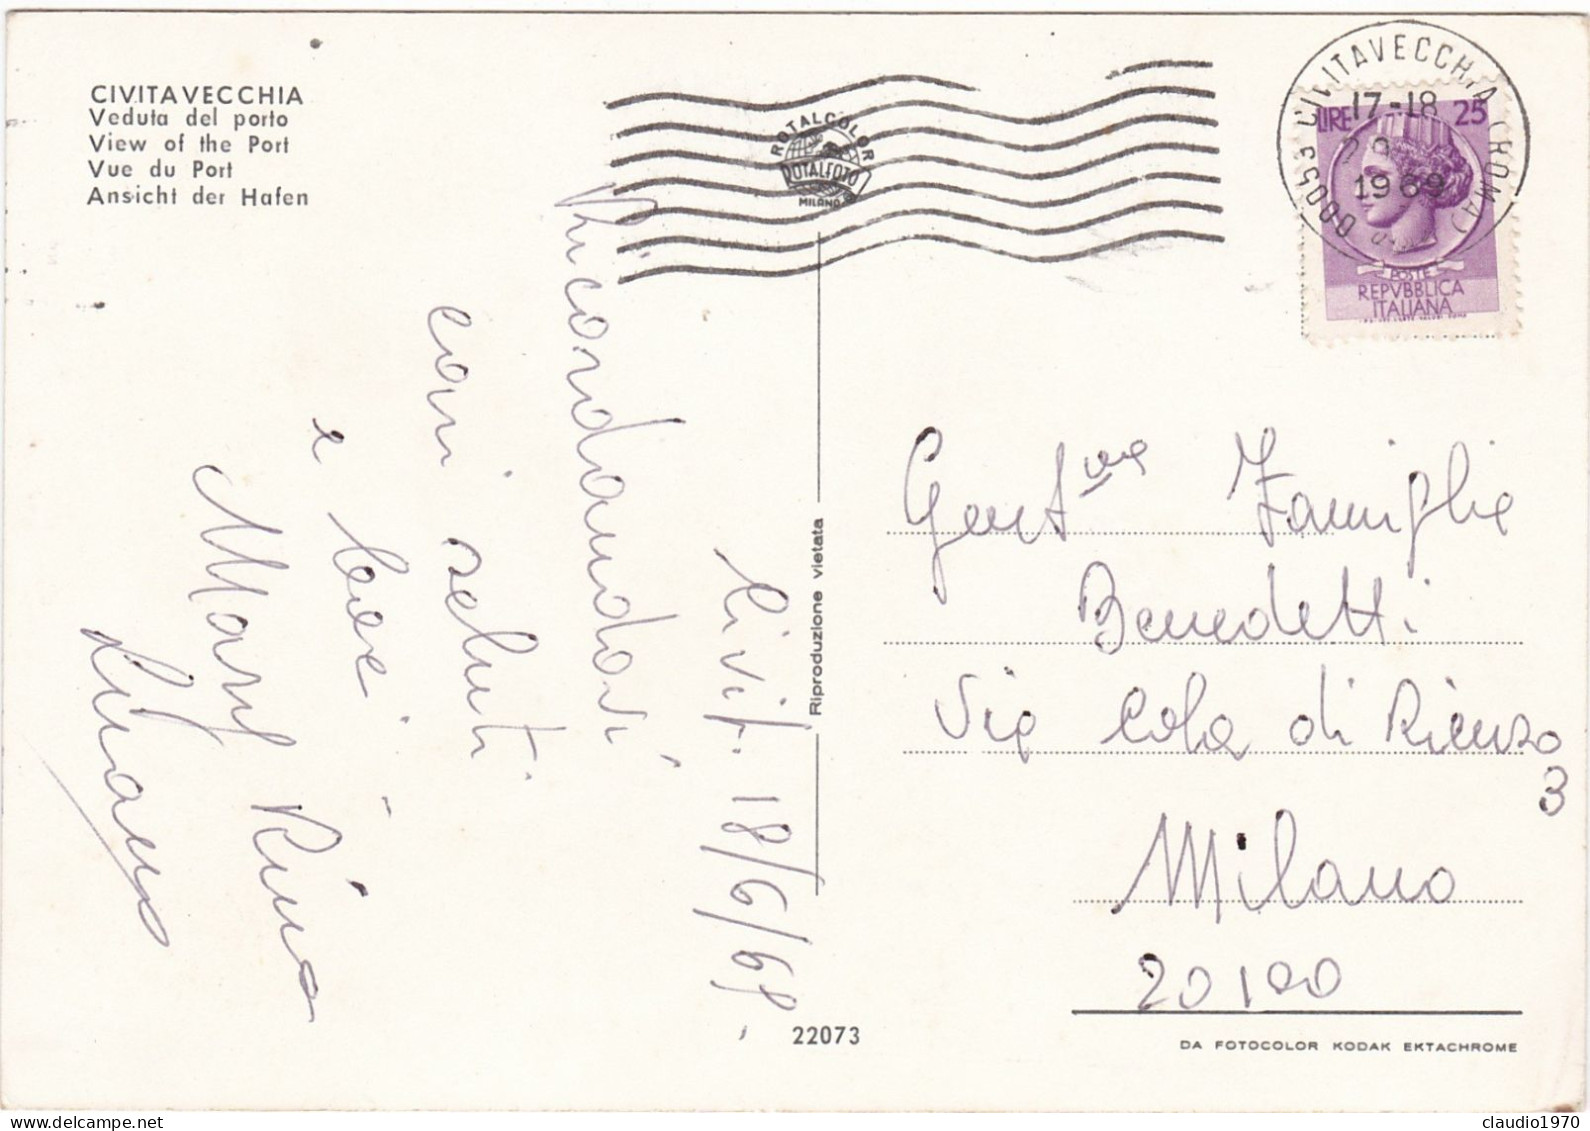 CIVITAVECCHIA
Veduta del porto
View of the Port
Vue du Port
Ansicht der Hafen
ROTALCOLOR
ROTALFOTO
MILANO
00053 CIVITAVECCHIA (ROMA)
17-18
1969
LIRE 25
POSTE
REPVBBLICA
ITALIANA
Civit. 18/6/69
Ricordandovi
cari saluti
e baci
Mary Rina
Gent.ma Famiglia
Benedetti
Via Cola di Rienzo
3
Milano
20100
Riproduzione vietata
22073
DA FOTOCOLOR KODAK EKTACHROME
claudio1970